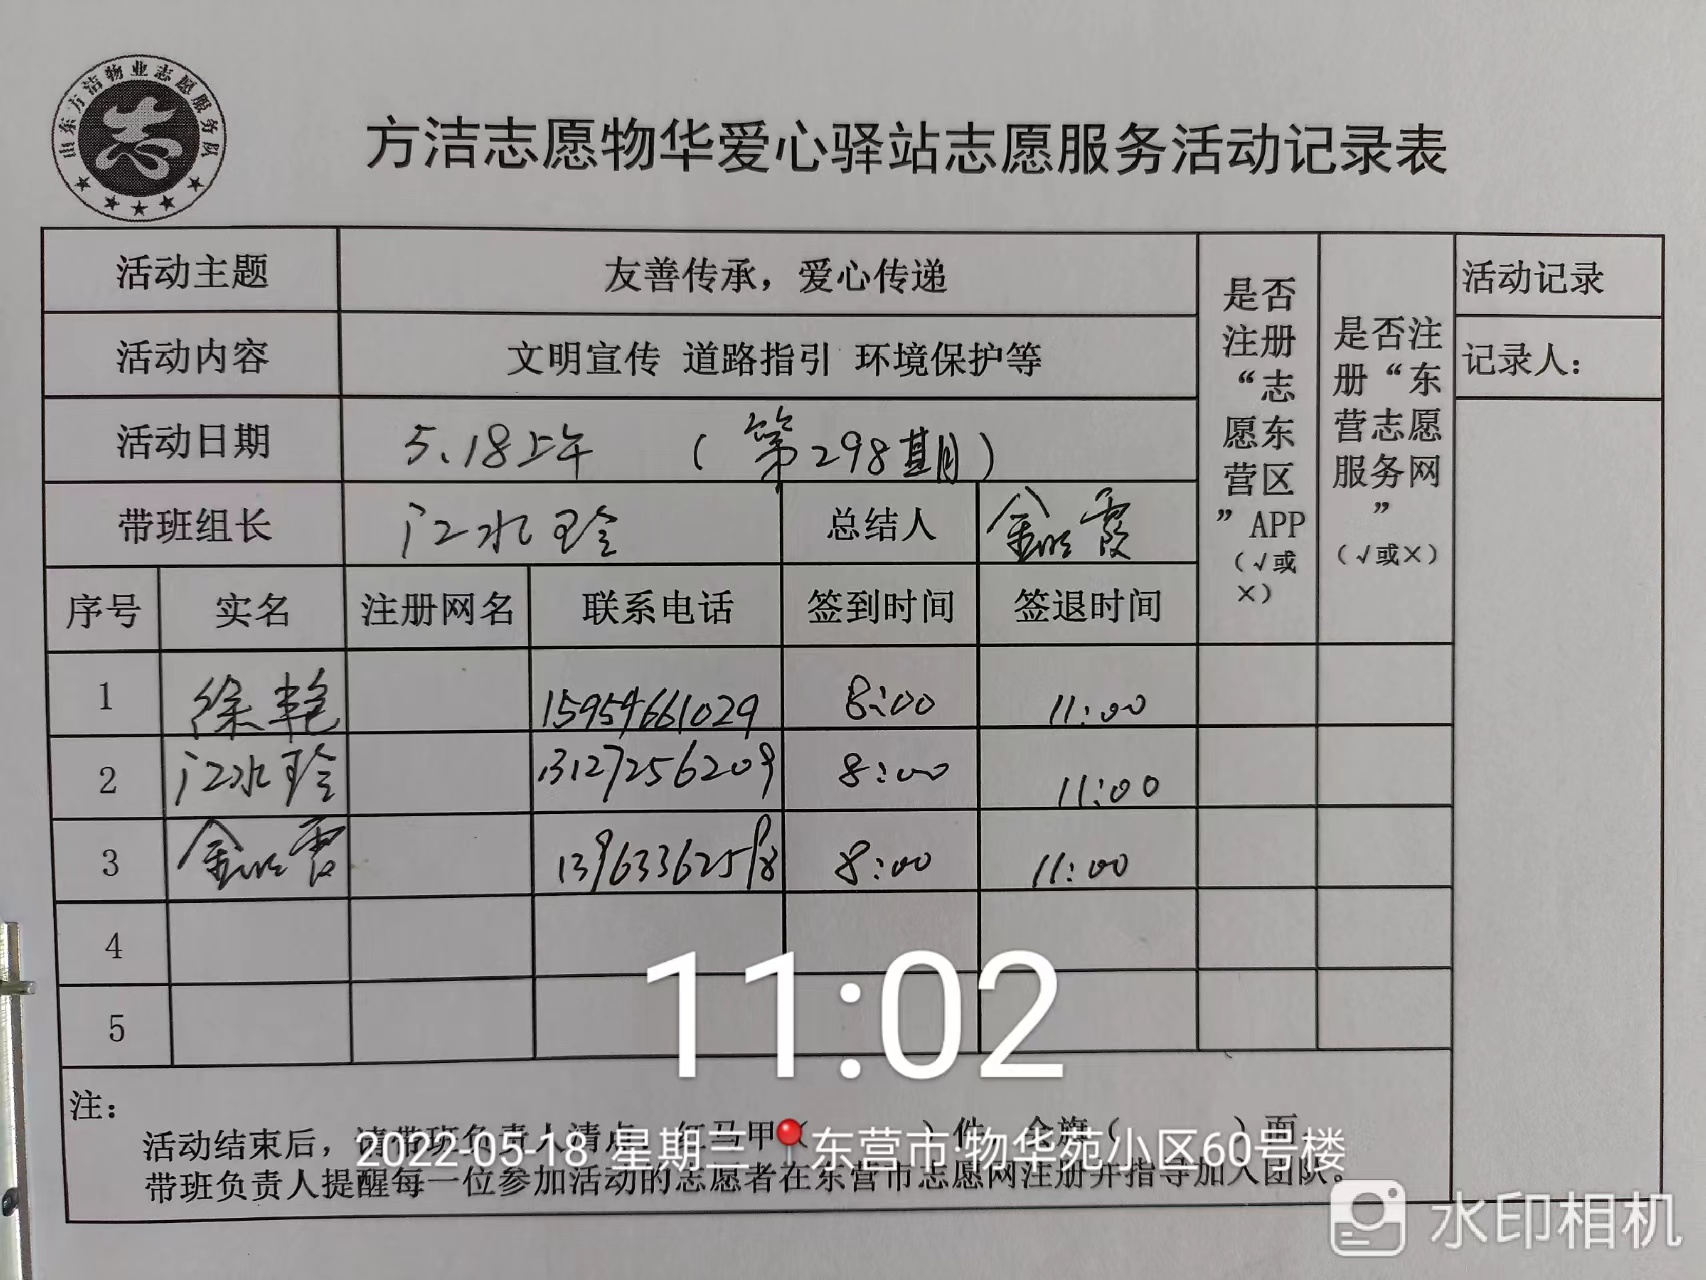 山东方洁物业志愿服务队
志
方洁志愿物华爱心驿站志愿服务活动记录表
活动主题 友善传承，爱心传递
活动内容 文明宣传 道路指引 环境保护等
活动日期 5.18上午 （第298期）
带班组长 江水玲 总结人 金皊霞
是否注册“志愿东营区”APP（√或×）
是否注册“东营志愿服务网”（√或×）
活动记录
记录人：
序号 实名 注册网名 联系电话 签到时间 签退时间
1 徐艳 15954661029 8:00 11:00
2 江水玲 13127256209 8:00 11:00
3 金 霞 13963362598 8:00 11:00
4
5
11:02
注：
活动结束后，请带班负责人清点 红马甲（ ）件 会旗（ ）面
2022-05-18 星期三 东营市·物华苑小区60号楼
带班负责人提醒每一位参加活动的志愿者在东营市志愿网注册并指导加入团队。
水印相机